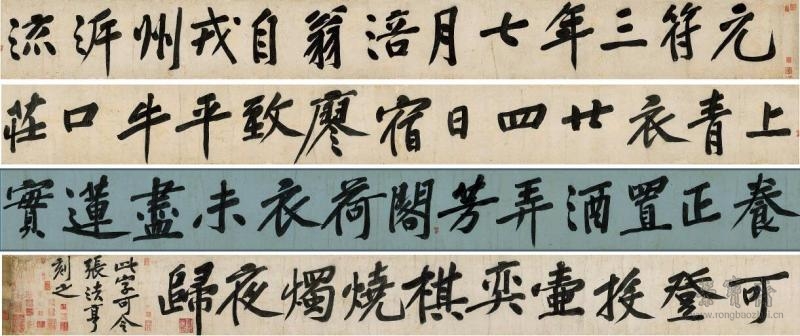 元符三年七月涪翁自戎州泝流
上青衣廿四日宿廖致平牛口莊
養正置酒弄芳閣荷衣未盡蓮實
可登投壺弈棋燒燭夜歸
此字可令
張法亨
刻之
www.rongbaozhai.cn